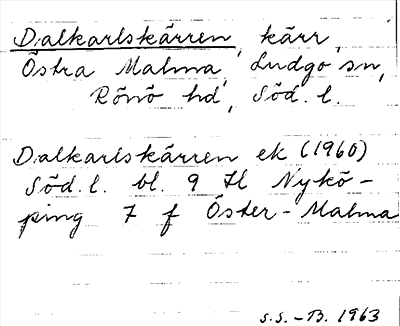 Dalkarlskärren, kärr,
Östra Malma, Ludgo sn,
Rönö hd, Söd. l.
Dalkarlskärren ek (1960)
Söd. l. bl. 9 H Nykö-
ping 7 f Öster-Malma
S.S.-B. 1963